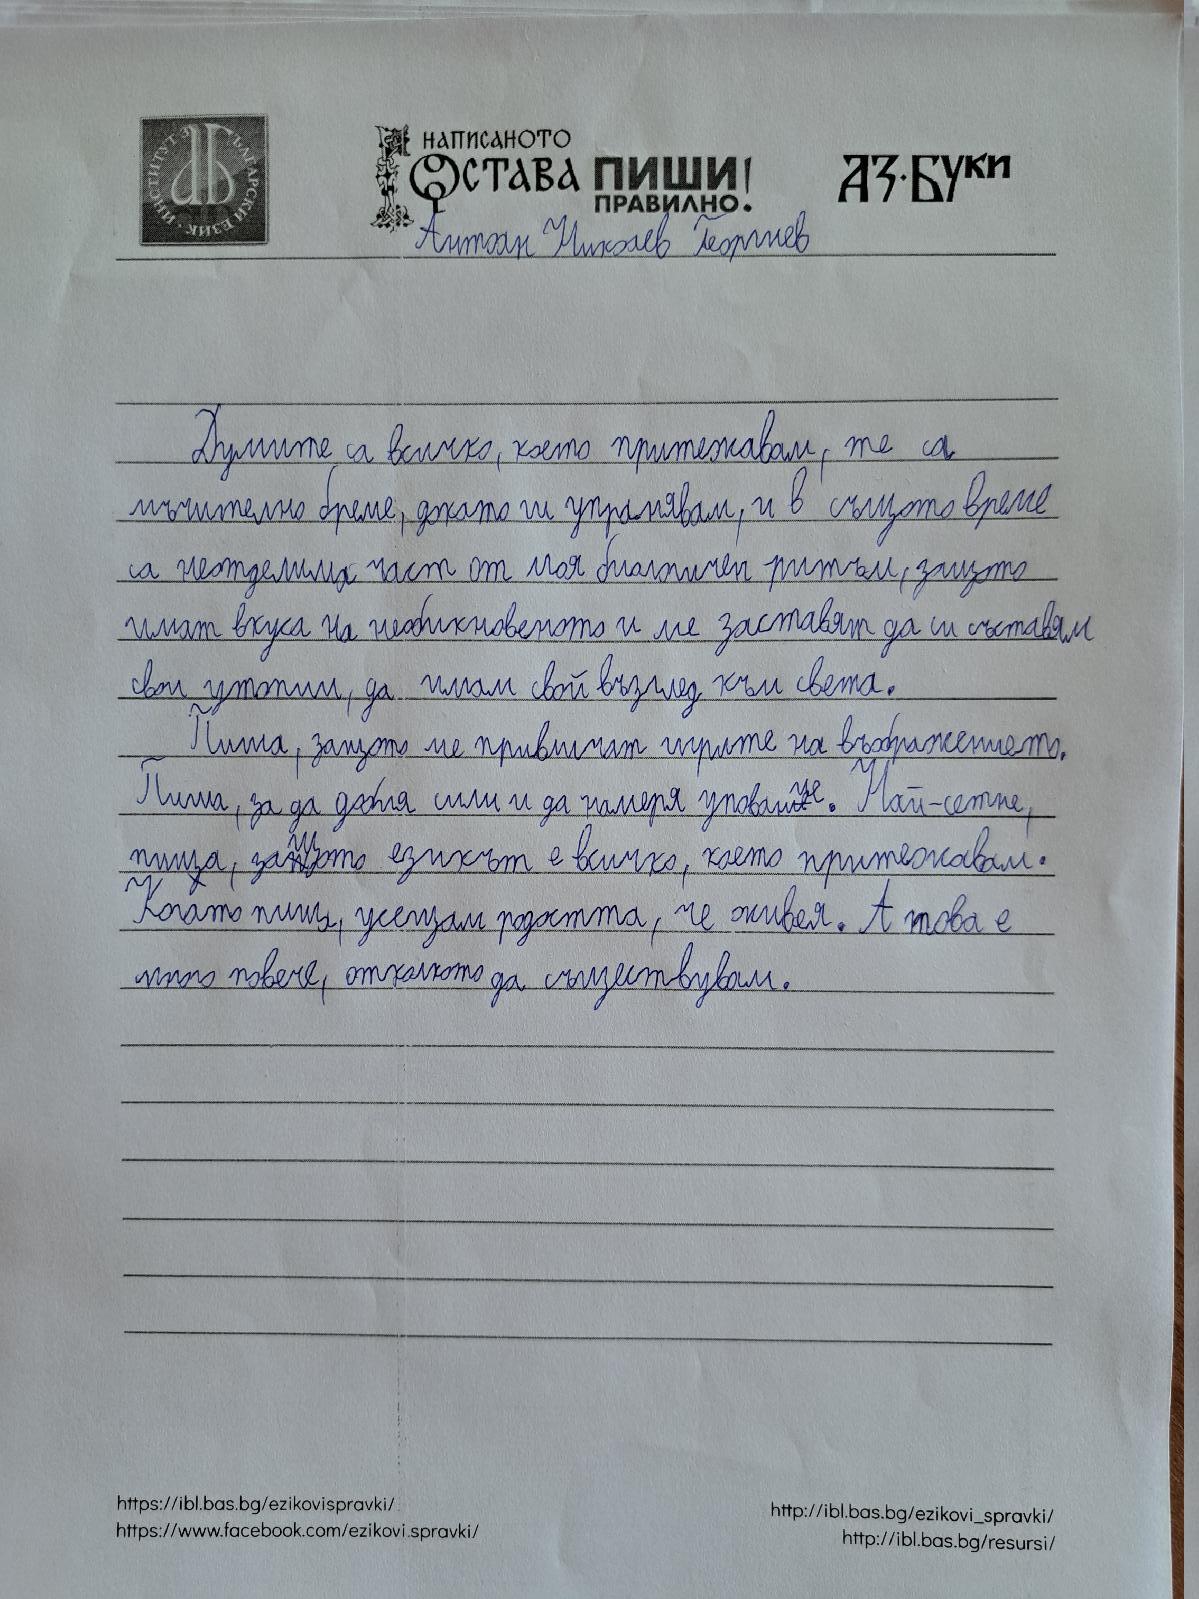 ИНСТИТУТ ЗА БЪЛГАРСКИ ЕЗИК
НАПИСАНОТО
ОСТАВА ПИШИ!
ПРАВИЛНО.
АЗ·БУКИ
Антоан Николаев Георгиев
Думите са всичко, което притежавам, те са
мъчително бреме, докато ги упранявам, и в същото време
са неотделима част от моя биологичен ритъм, защото
имат вкуса на необикновеното и ме заставят да си съставям
свои утопии, да имам свой възглед към света.
Пиша, защото ме привличат игрите на въображението.
Пиша, за да добия сили и да намеря упование. Най-сетне,
пиша, защото езикът е всичко, което притежавам.
Когато пиша, усещам радостта, че живея. А това е
много повече, отколкото да съществувам.
https://ibl.bas.bg/ezikovispravki/
https://www.facebook.com/ezikovi.spravki/
http://ibl.bas.bg/ezikovi_spravki/
http://ibl.bas.bg/resursi/